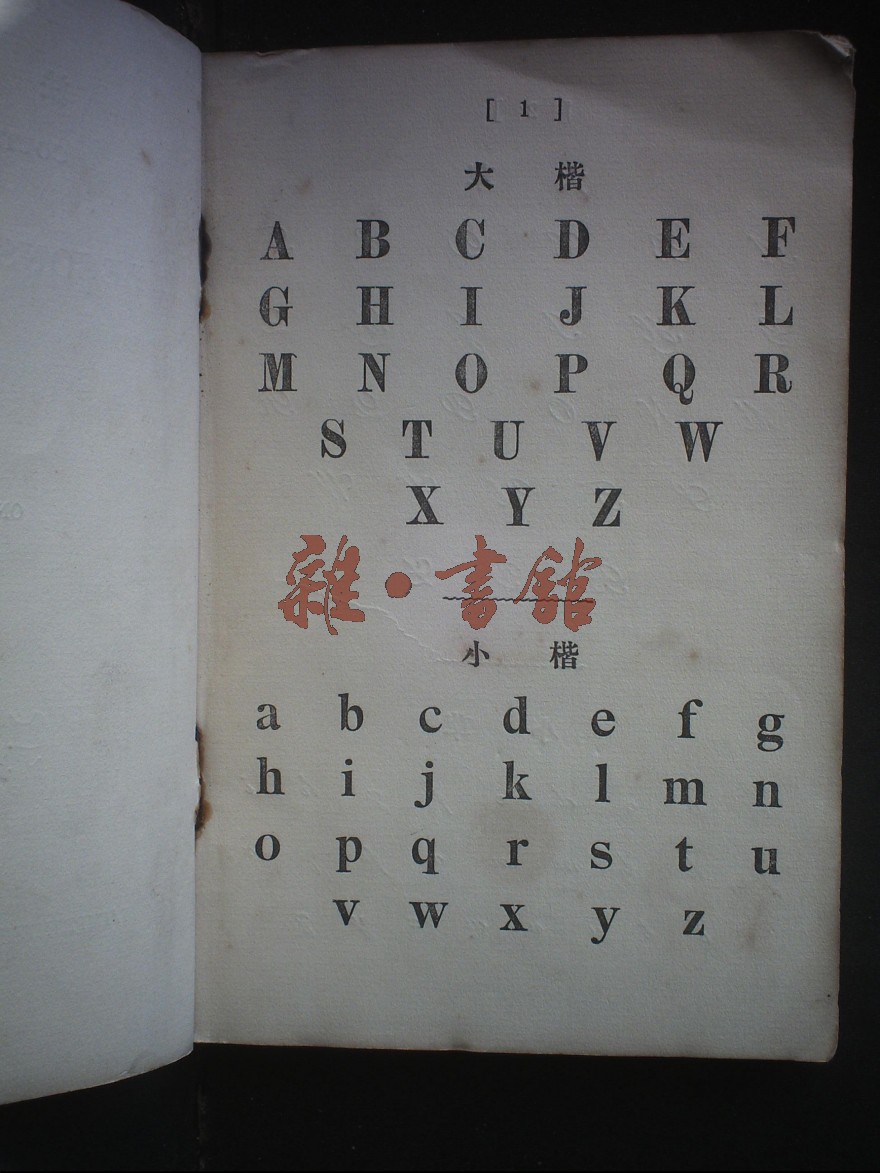 [ 1 ]
大 楷
A B C D E F
G H I J K L
M N O P Q R
S T U V W
X Y Z
雜·書館
小 楷
a b c d e f g
h i j k l m n
o p q r s t u
v w x y z